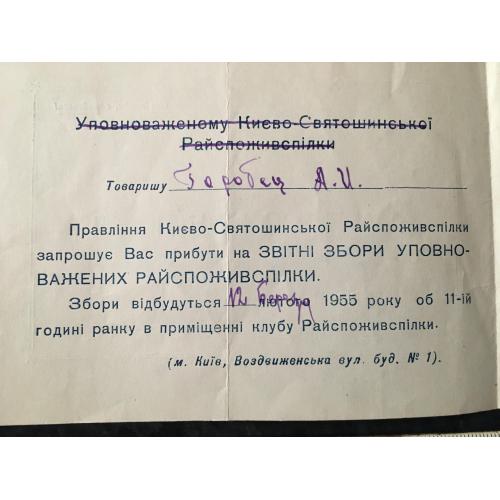 Уповноваженому Києво-Святошинської
Райспоживспілки
Товаришу Горобец А.И.
Правління Києво-Святошинської Райспоживспілки
запрошує Вас прибути на ЗВІТНІ ЗБОРИ УПОВНО-
ВАЖЕНИХ РАЙСПОЖИВСПІЛКИ.
Збори відбудуться 12 березня лютого 1955 року об 11-ій
годині ранку в приміщенні клубу Райспоживспілки.
(м. Київ, Воздвиженська вул. буд. № 1).